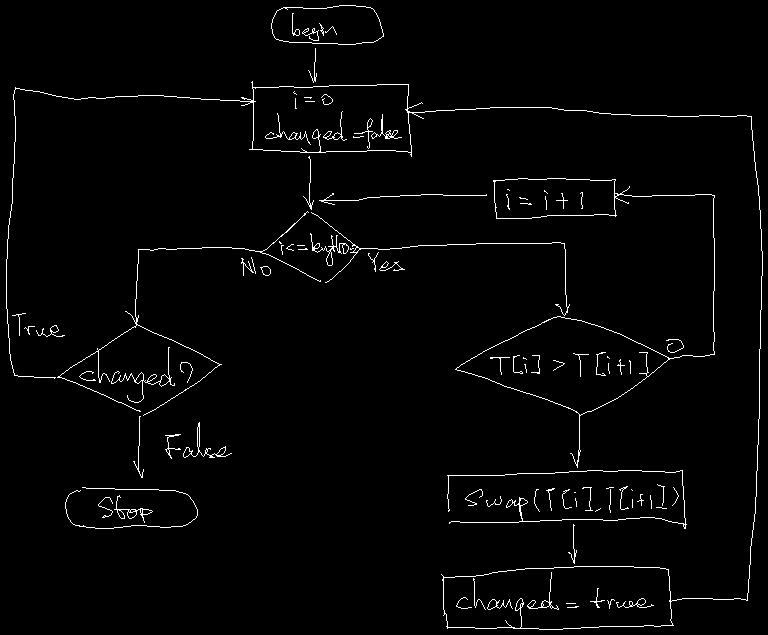 begin
i=0
changed=false
i = i + 1
No
Yes
True
changed?
T[i] > T[i+1]
0
False
Stop
Swap(T[i], T[i+1])
changed = true